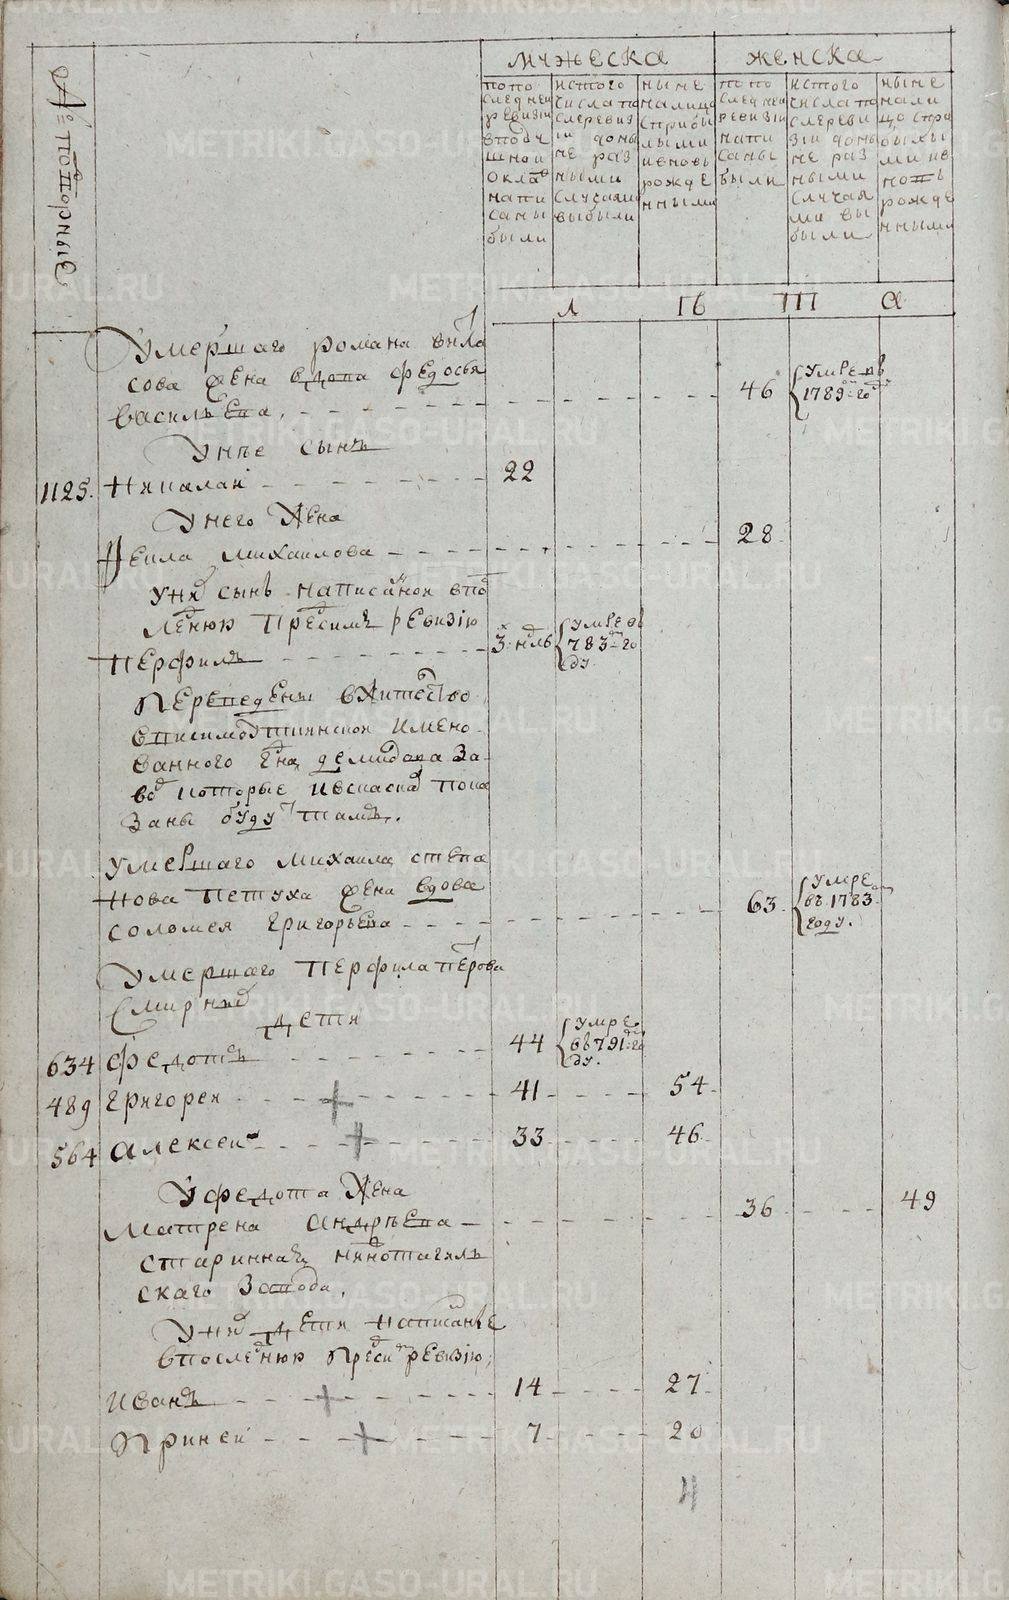 мужеска
женска
попо
следней
ревизии
вподу
шной
оклад
напи
саны
были
истого
числа по
слеревиз
iи доны
не раз
ными
случаями
выбыли
ныне
налицо
сприбы
лыми
ивновь
рожде
нными
попо
следней
ревизiи
напи
саны
были
истого
числа по
слереви
зiи доны
не раз
ными
случая
ми вы
были
ныне
нали
цо спри
былы
ми ив
новь
рожде
нными
Умершаго романа
сова жена вдова федосья
василъева
46
умре в
1789 году
Унее сынъ
1125. Николай 22
Унего жена
28
михаилова
Уних сынъ написанной впо
следнюю пред симъ ревизiю
Перфилъ
3. ндль
умре в
783 го
ду
Переведены вжителство
именованного гна демидова за
вод которые ивсказке пока
заны будут тамъ.
умершаго михаила степа
нова петуха жена вдова
соломея григорьева
63
умре
въ 1783
году.
Умершаго Перфила петрова
Смирных
дети
634 федотъ 44
умре
въ 791 го
ду.
489 григореи 41 54
564 алексеи 33 46
У федота жена
матрена андръева 36 49
старинная нижнотагилъ
скаго завода.
Уних дети написанные
впоследнюю пред сим ревизiю,
иванъ 14 27
7 20
4
METRIKI.GASO-URAL.RU